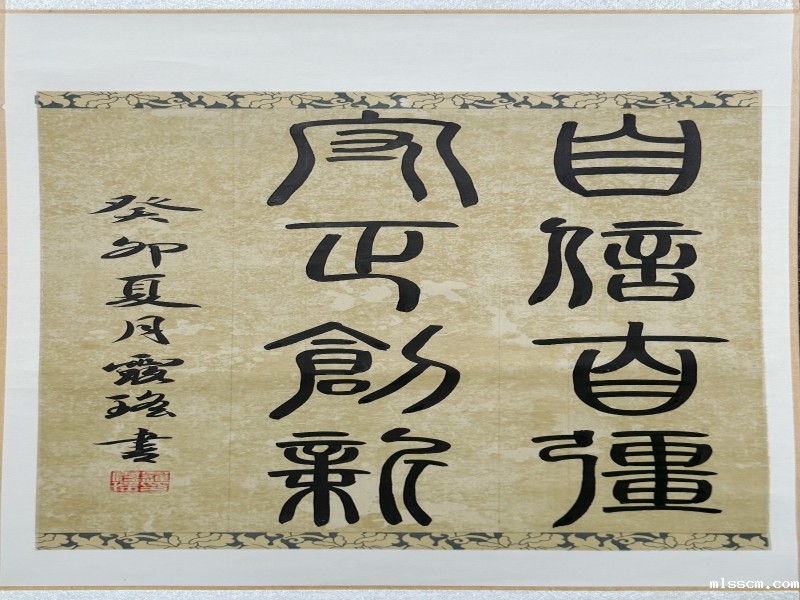 自信自彊
守正創新
癸卯夏月霞瑤書
mlsscm.com